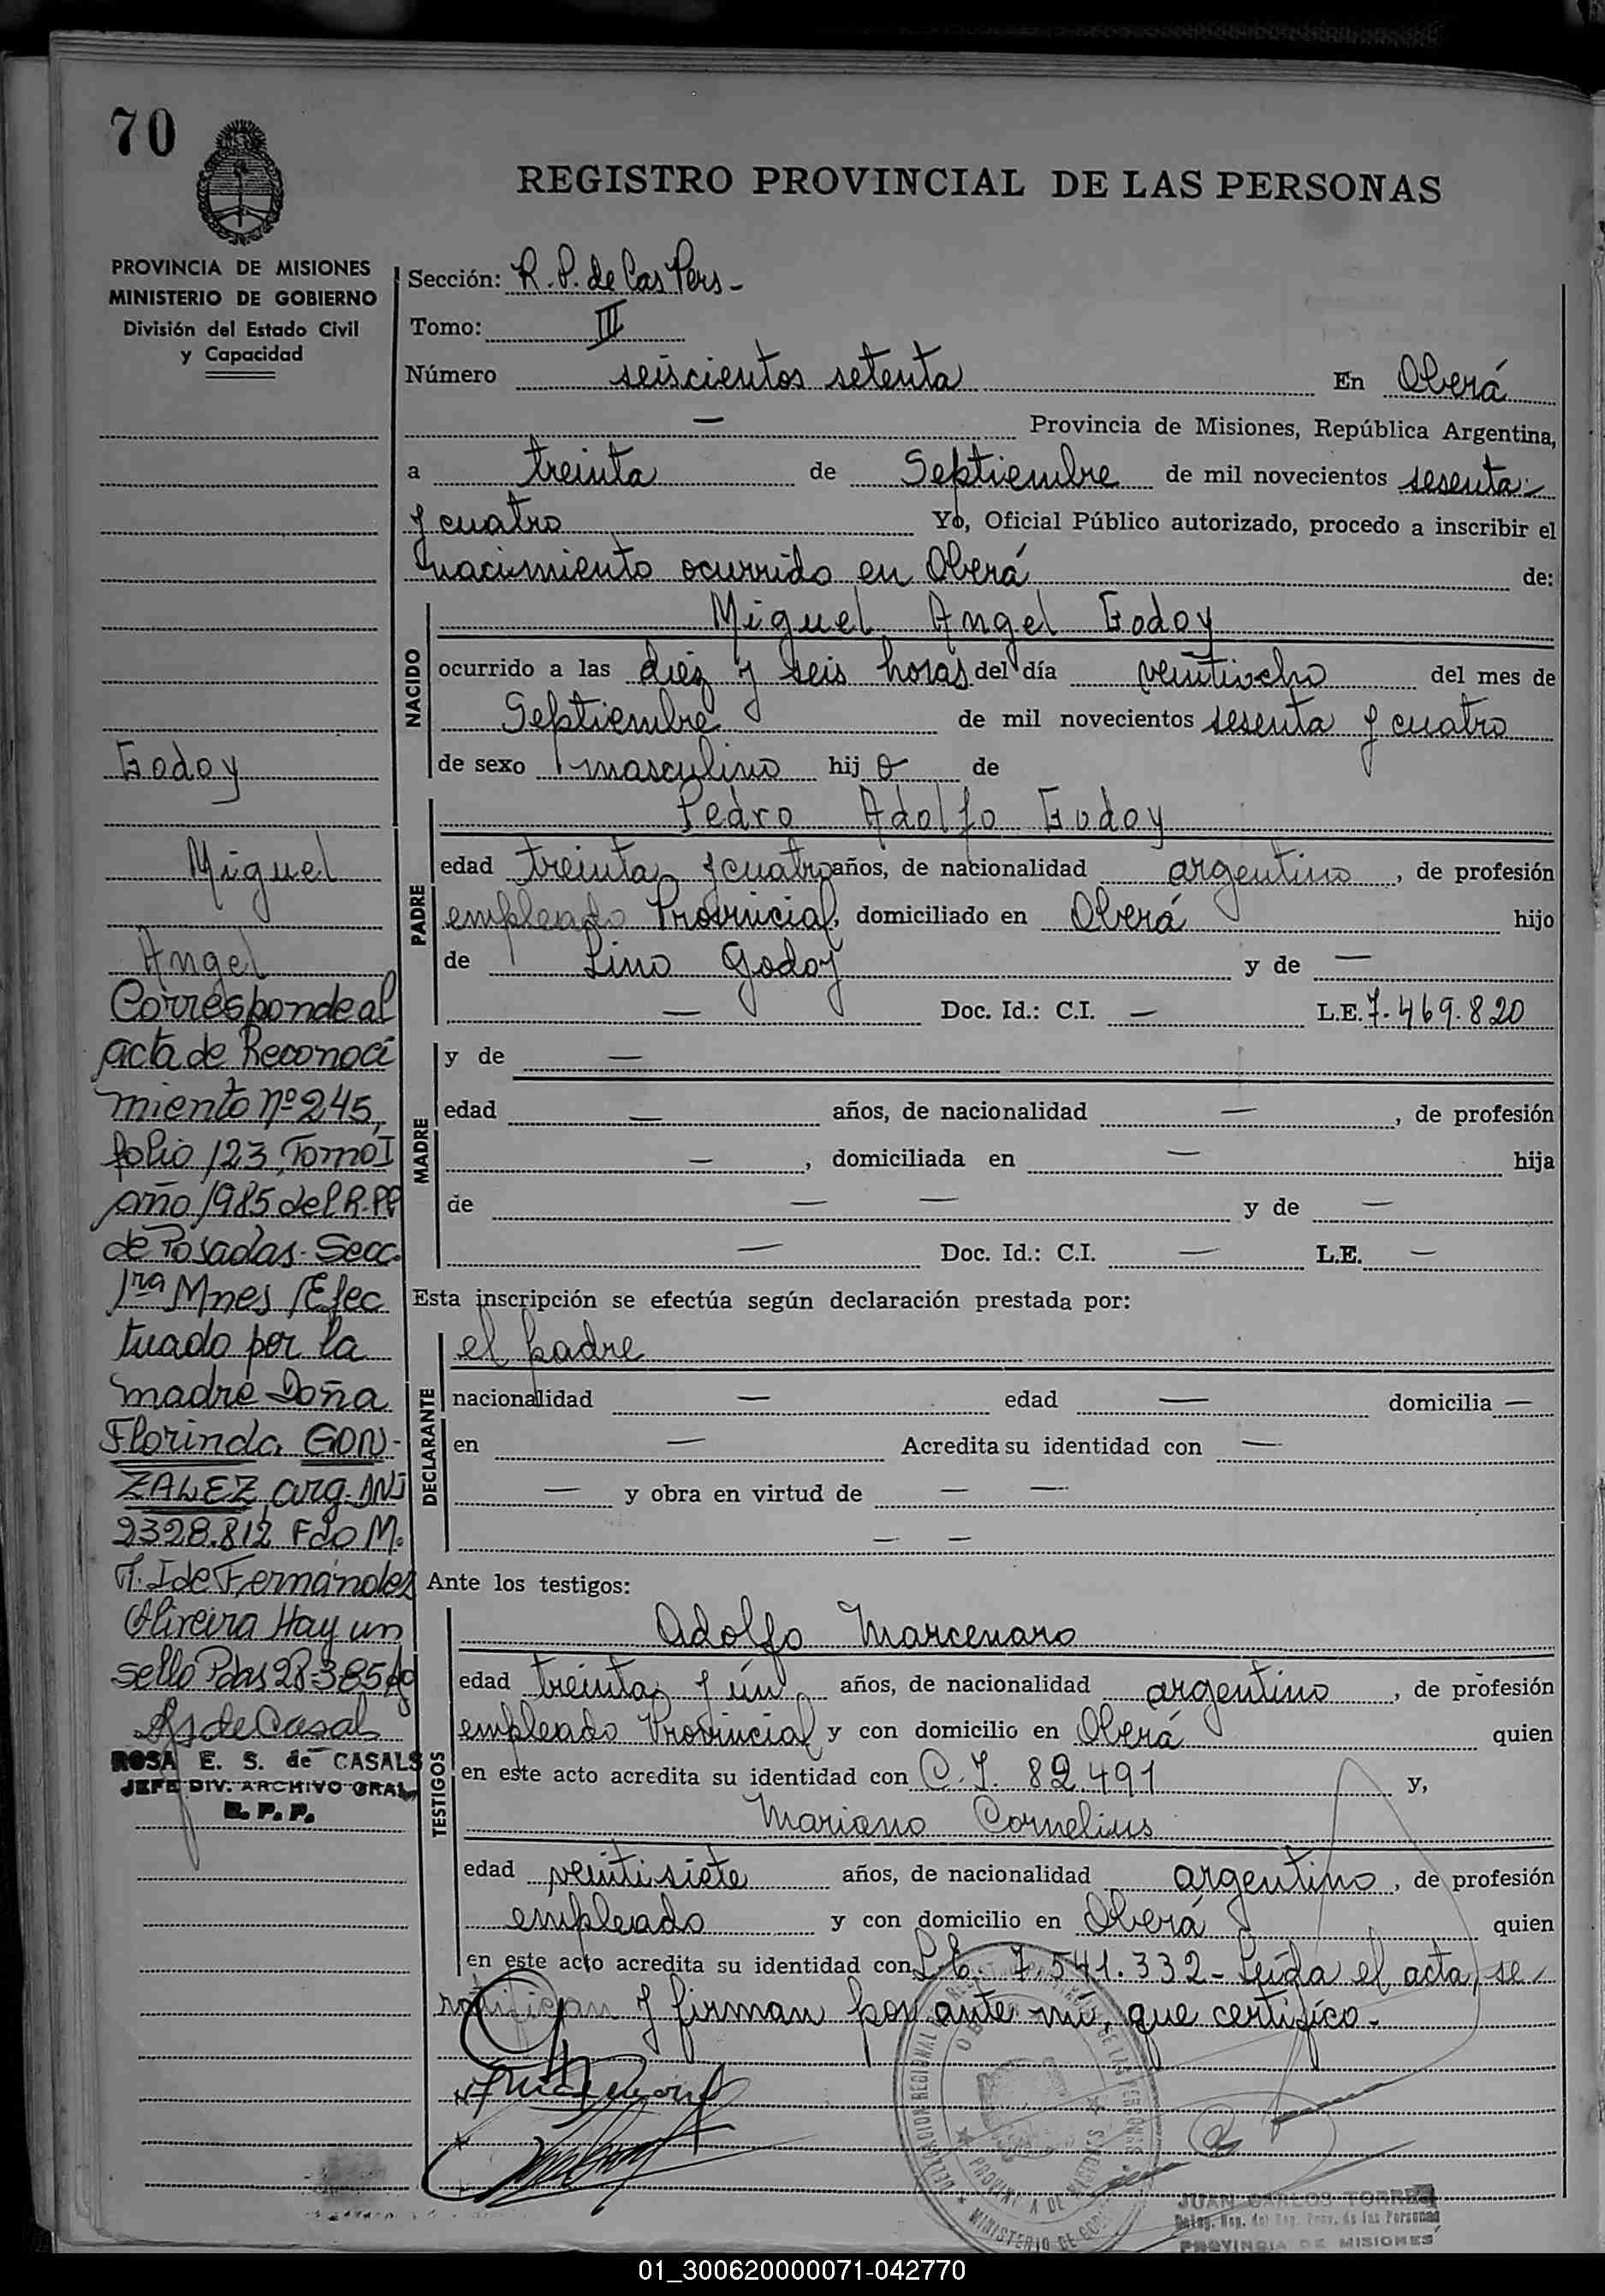 70
REGISTRO PROVINCIAL DE LAS PERSONAS
PROVINCIA DE MISIONES
MINISTERIO DE GOBIERNO
División del Estado Civil
y Capacidad
Sección: R.P. de las Pers -
Tomo: III
Número seiscientos setenta En Oberá
— Provincia de Misiones, República Argentina,
a treinta de Septiembre de mil novecientos sesenta
y cuatro Yo, Oficial Público autorizado, procedo a inscribir el
nacimiento ocurrido en Oberá de:
NACIDO
Miguel Angel Godoy
ocurrido a las diez y seis horas del día veintiocho del mes de
Septiembre de mil novecientos sesenta y cuatro
de sexo masculino hij o de
PADRE
Pedro Adolfo Godoy
edad treinta y cuatro años, de nacionalidad argentino, de profesión
empleado Provincial, domiciliado en Oberá hijo
de Lino Godoy y de —
— Doc. Id.: C.I. — L.E. 7.469.820
MADRE
y de —
edad — años, de nacionalidad —, de profesión
—, domiciliada en — hija
de — — y de —
— Doc. Id.: C.I. — L.E. —
Esta inscripción se efectúa según declaración prestada por:
DECLARANTE
el padre
nacionalidad — edad — domicilia —
en — Acredita su identidad con —
— y obra en virtud de — —
— —
Ante los testigos:
TESTIGOS
Adolfo Marcenaro
edad treinta y un años, de nacionalidad argentino, de profesión
empleado Provincial y con domicilio en Oberá quien
en este acto acredita su identidad con C.I. 82.491 y,
Mariano Cornelius
edad veintisiete años, de nacionalidad argentino, de profesión
empleado y con domicilio en Oberá quien
en este acto acredita su identidad con L.E. 7.541.332 - Leída el acta, se
ratifican y firman por ante mí, que certifico.
Godoy
Miguel
Angel
Corresponde al
acta de Reconoci
miento nº 245,
folio 123, Tomo I
año 1985 del R.PP
de Posadas - Secc.
1ra Mnes /Efec
tuado por la
madre Doña
Florinda GON-
ZALEZ, arg. DNI
2328.812 Fdo M.
T. I de Fernández
Oliveira Hay un
sello Pdas 28-3-85
ROSA E. S. de CASALS
JEFE DIV. ARCHIVO GRAL
R. P. P.
DELEGACION REGIONAL DE LAS PERSONAS
OBERA
PROVINCIA DE MISIONES
MINISTERIO DE GOB
JUAN CARLOS TORRES
Deleg. Reg. del Reg. Prov. de las Personas
PROVINCIA DE MISIONES
01_300620000071-042770